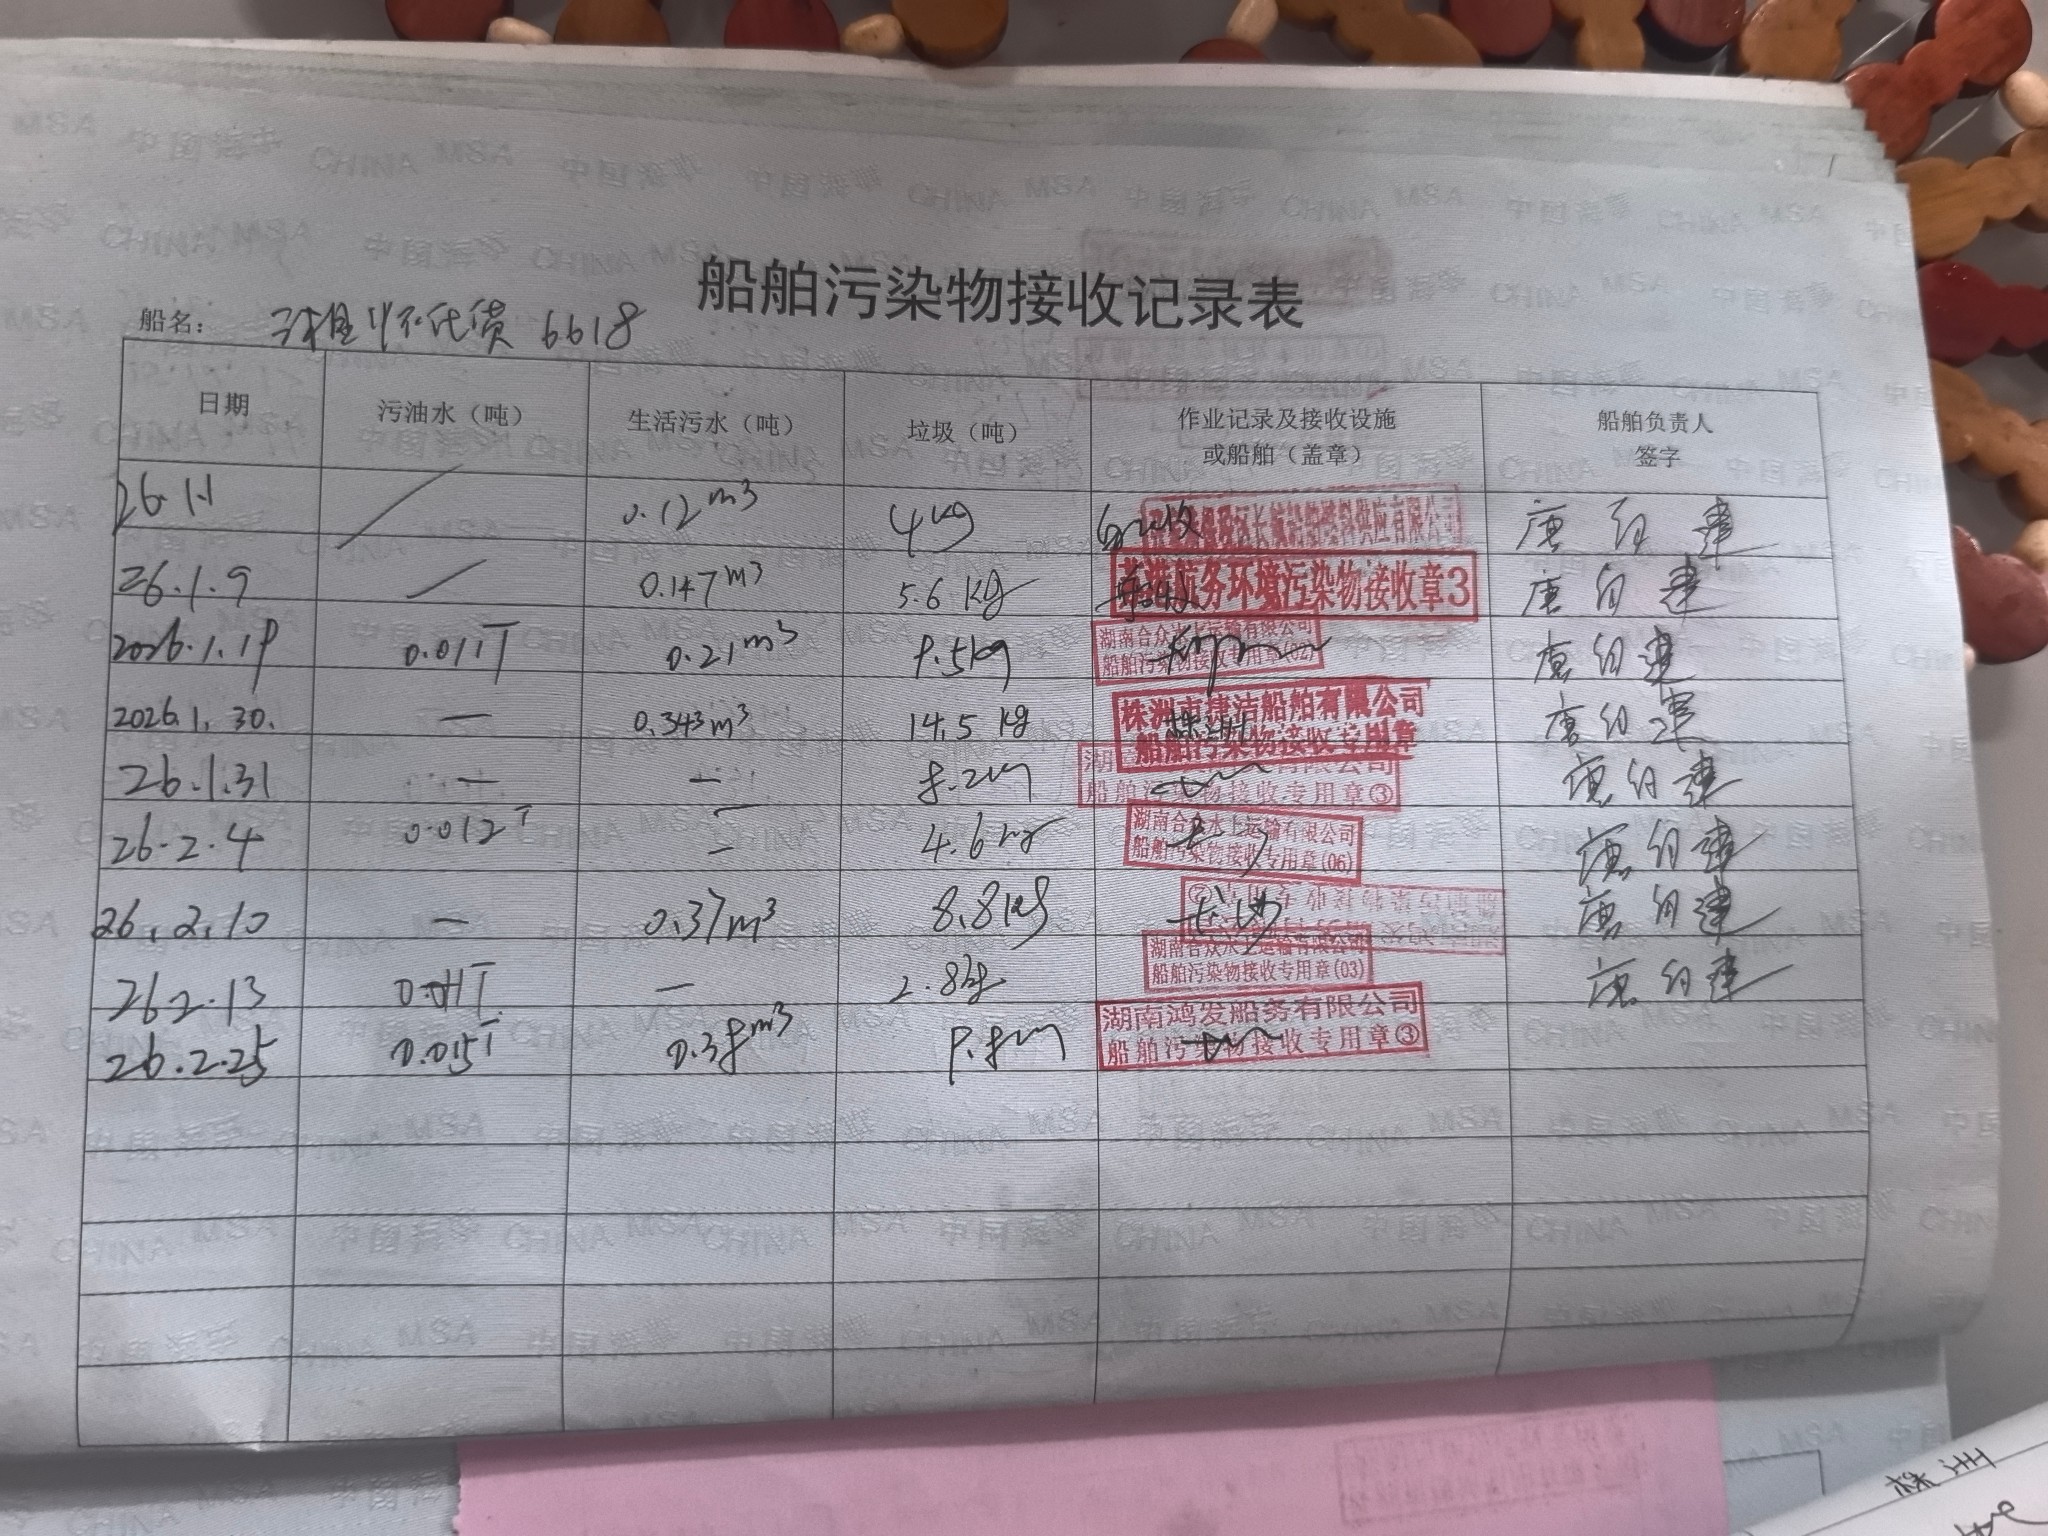 船舶污染物接收记录表
船名： 货 6618
日期 污油水（吨） 生活污水（吨） 垃圾（吨） 作业记录及接收设施或船舶（盖章） 船舶负责人签字
26.1.1 / 0.12m³ 4kg 唐 建
26.1.9 / 0.147m³ 5.6kg 航务环境污染物接收章3 唐 建
2026.1.19 0.011T 0.21m³ 9.5kg 湖南合众水上运输有限公司 船舶污染物接收专用章(02) 唐 建
2026.1.30. — 0.343m³ 14.5kg 株洲市 洁船舶有限公司 船舶污染物接收专用章 株洲 唐 建
26.1.31 — — 8.2kg 湖 有限公司 船舶污染物接收专用章③ 唐 建
26.2.4 0.012T — 4.6kg 湖南合众水上运输有限公司 船舶污染物接收专用章(06) 长沙 唐 建
26.2.10 — 0.37m³ 8.8kg 长沙 唐 建
26.2.13 0.011T — 2.8kg 湖南合众水上运输有限公司 船舶污染物接收专用章(03) 唐 建
26.2.25 0.015T 0.38m³ 9.8kg 湖南鸿发船务有限公司 船舶污染物接收专用章③
株洲